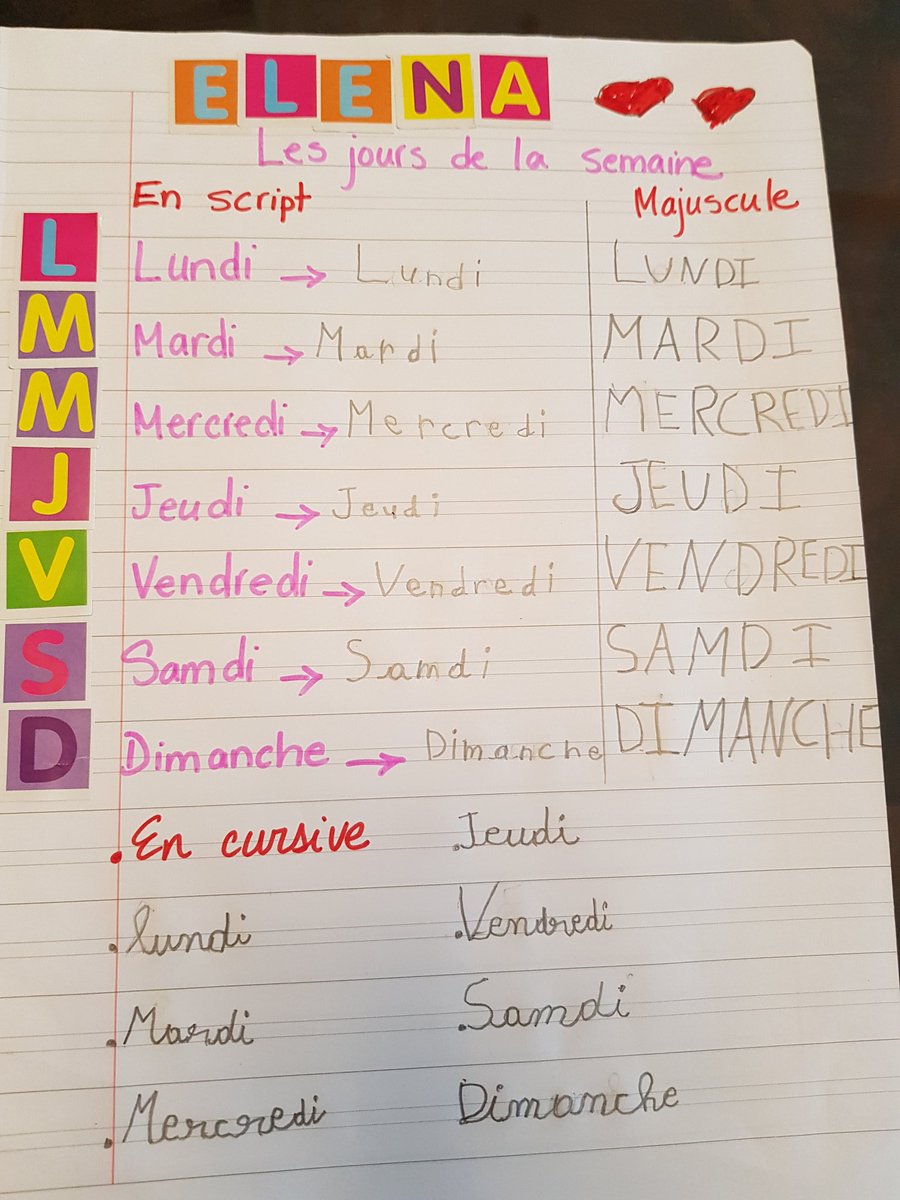 ELENA
Les jours de la semaine
En script Majuscule
L Lundi → Lundi LUNDI
M Mardi → Mardi MARDI
M Mercredi → Mercredi MERCREDI
J Jeudi → Jeudi JEUDI
V Vendredi → Vendredi VENDREDI
S Samdi → Samdi SAMDI
D Dimanche → Dimanche DIMANCHE
. En cursive .Jeudi
. lundi .Vendredi
. Mardi .Samdi
. Mercredi Dimanche